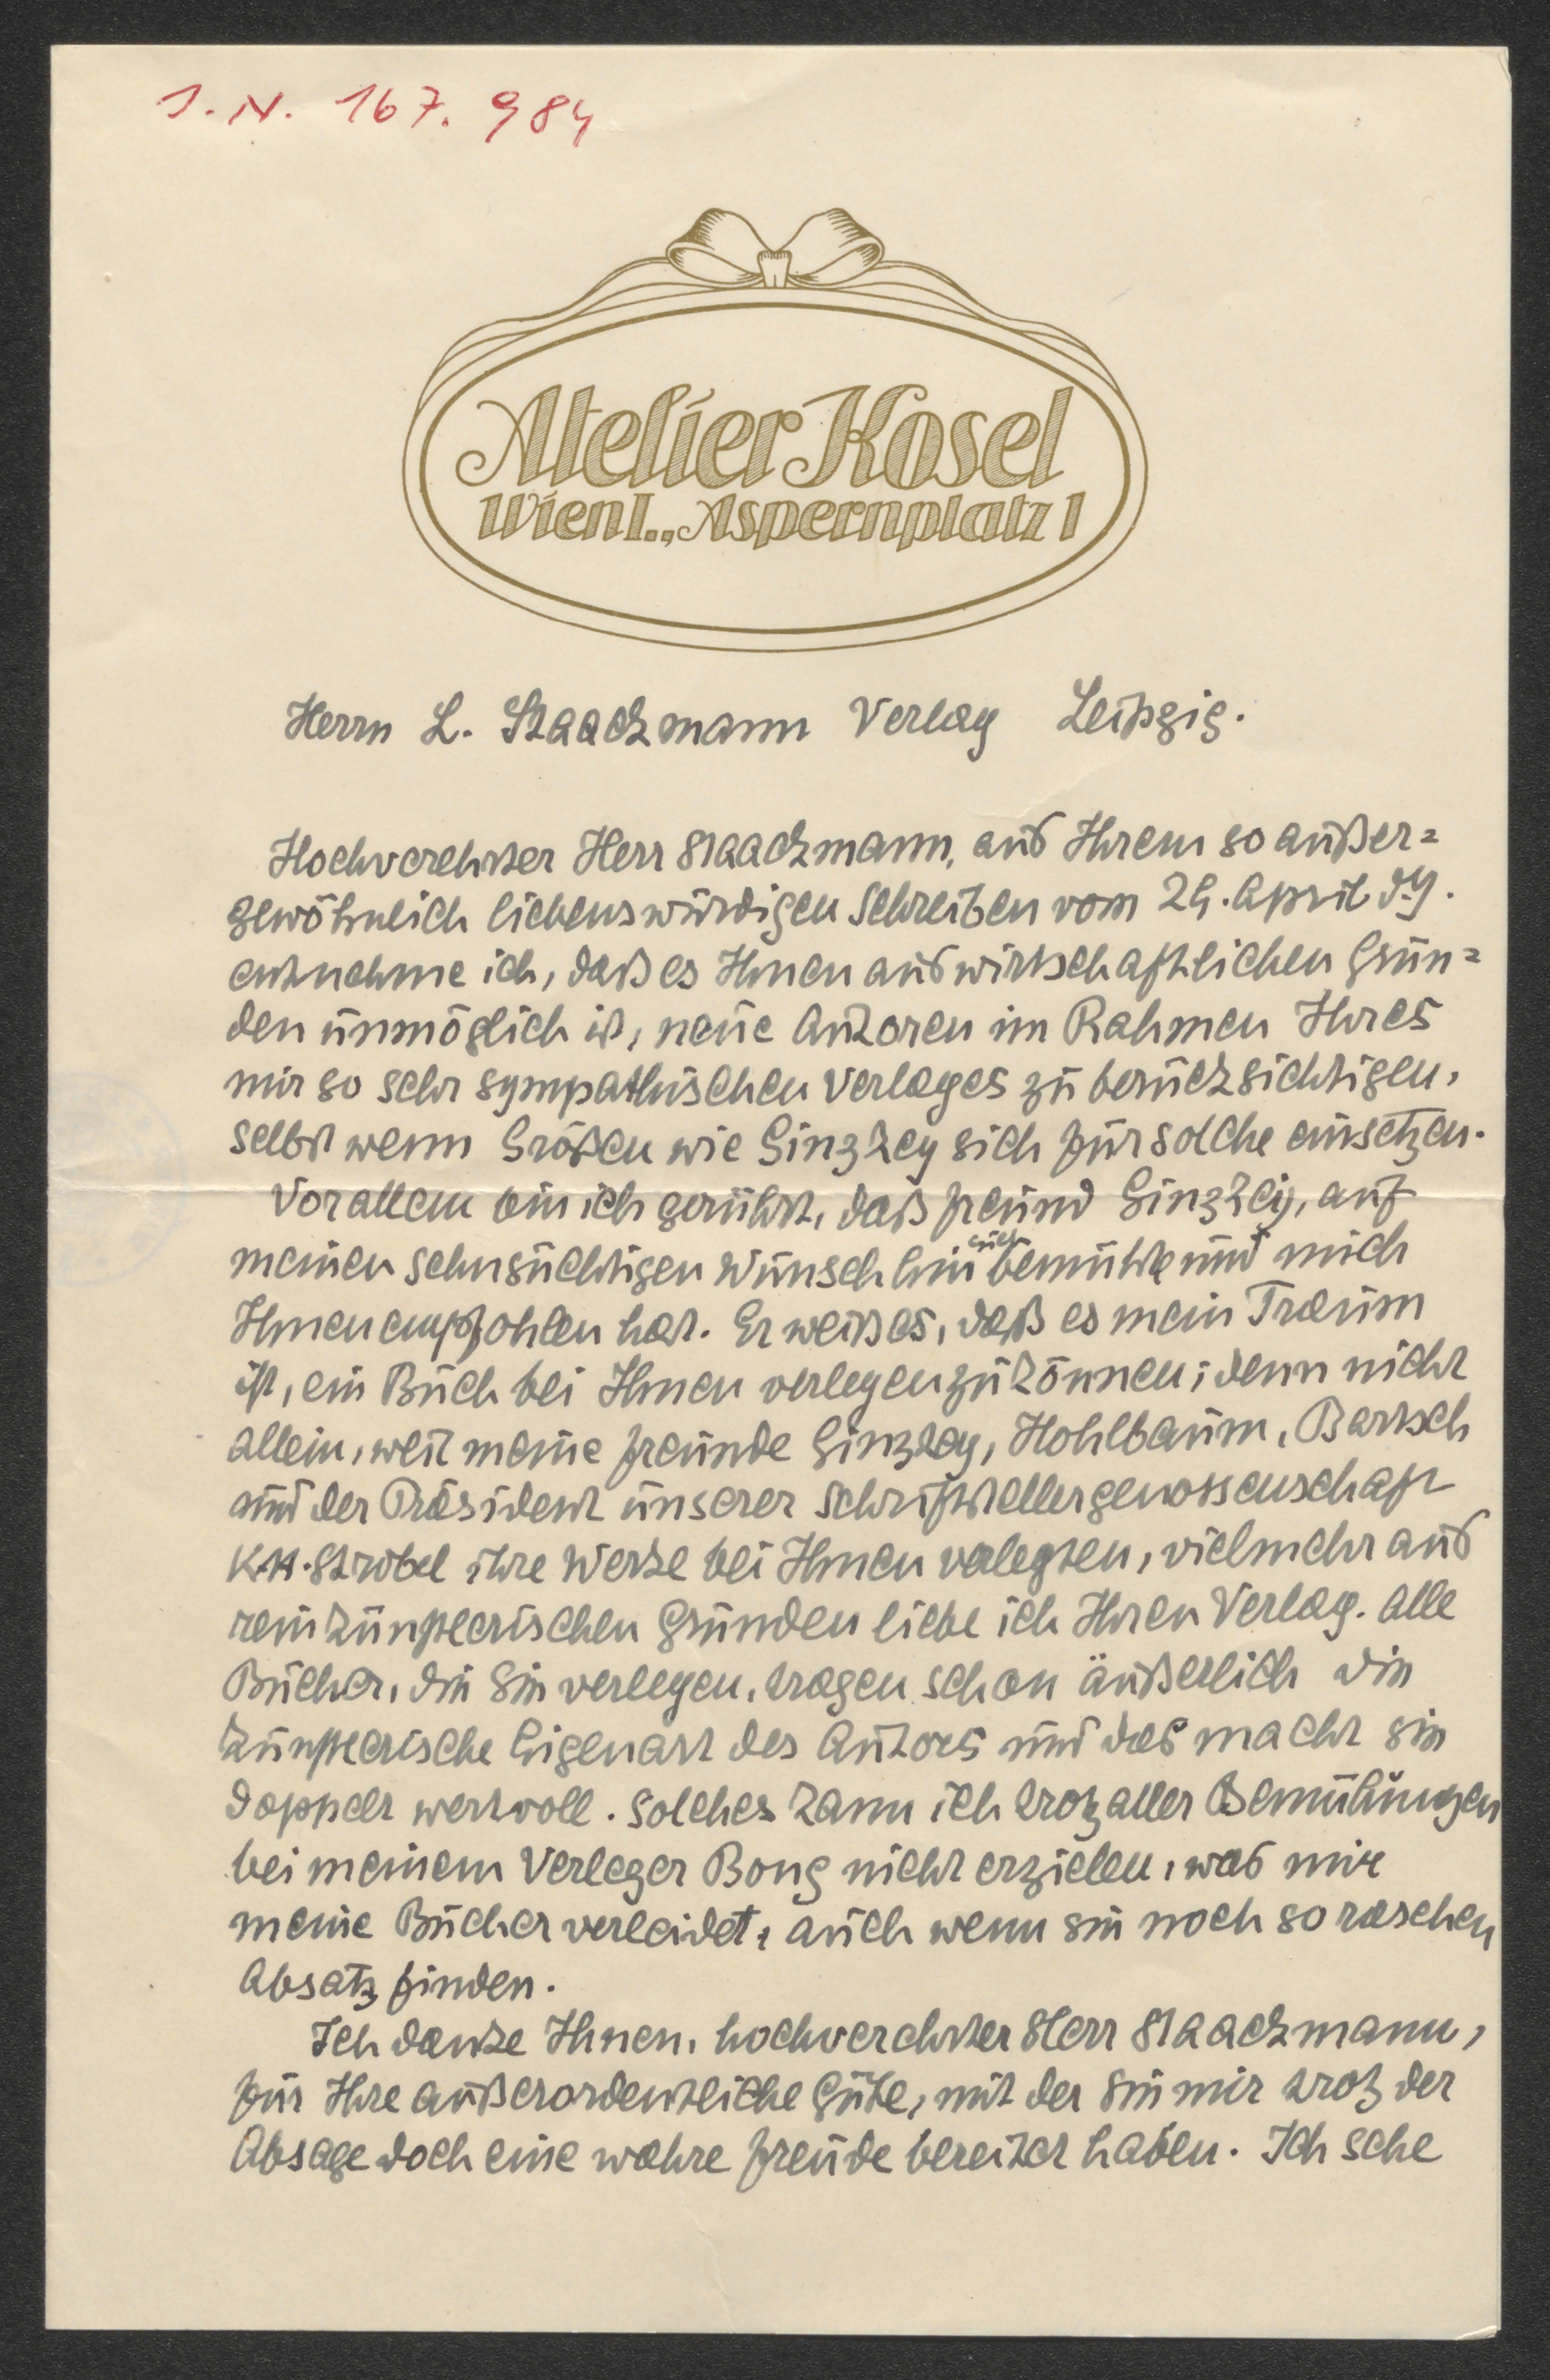 J. N. 167.984
Atelier Kosel
Wien I., Aspernplatz 1
Herrn L. Staackmann Verlag Leipzig.
Hochverehrter Herr Staackmann, aus Ihrem so außer=
gewöhnlich liebenswürdigen Schreiben vom 29. April d. J.
entnehme ich, daß es Ihnen aus wirtschaftlichen Grün=
den unmöglich ist, neue Autoren im Rahmen Ihres
mir so sehr sympathischen Verlages zu berücksichtigen,
selbst wenn Größen wie Ginzkey sich für solche einsetzen.
Vor allem bin ich gerührt, daß Freund Ginzkey, auf
meinen sehnsüchtigen Wunsch hin sich bemühte und mich
Ihnen empfohlen hat. Er weiß es, daß es mein Traum
ist, ein Buch bei Ihnen verlegen zu können; denn nicht
allein, weil meine Freunde Ginzkey, Hohlbaum, Bartsch
und der Präsident unserer Schriftstellergenossenschaft
K. H. Strobel ihre Werke bei Ihnen verlegten, vielmehr aus
rein künstlerischen Gründen liebe ich Ihren Verlag. Alle
Bücher, die Sie verlegen, tragen schon äußerlich die
künstlerische Eigenart des Autors und das macht sie
doppelt wertvoll. Solches kann ich trotz aller Bemühungen
bei meinem Verleger Bong nicht erzielen, was mir
meine Bücher verleidet, auch wenn sie noch so raschen
Absatz finden.
Ich danke Ihnen, hochverehrter Herr Staackmann,
für Ihre außerordentliche Güte, mit der Sie mir trotz der
Absage doch eine wahre Freude bereitet haben. Ich sehe